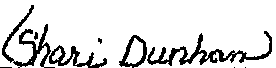 Shari Dunham